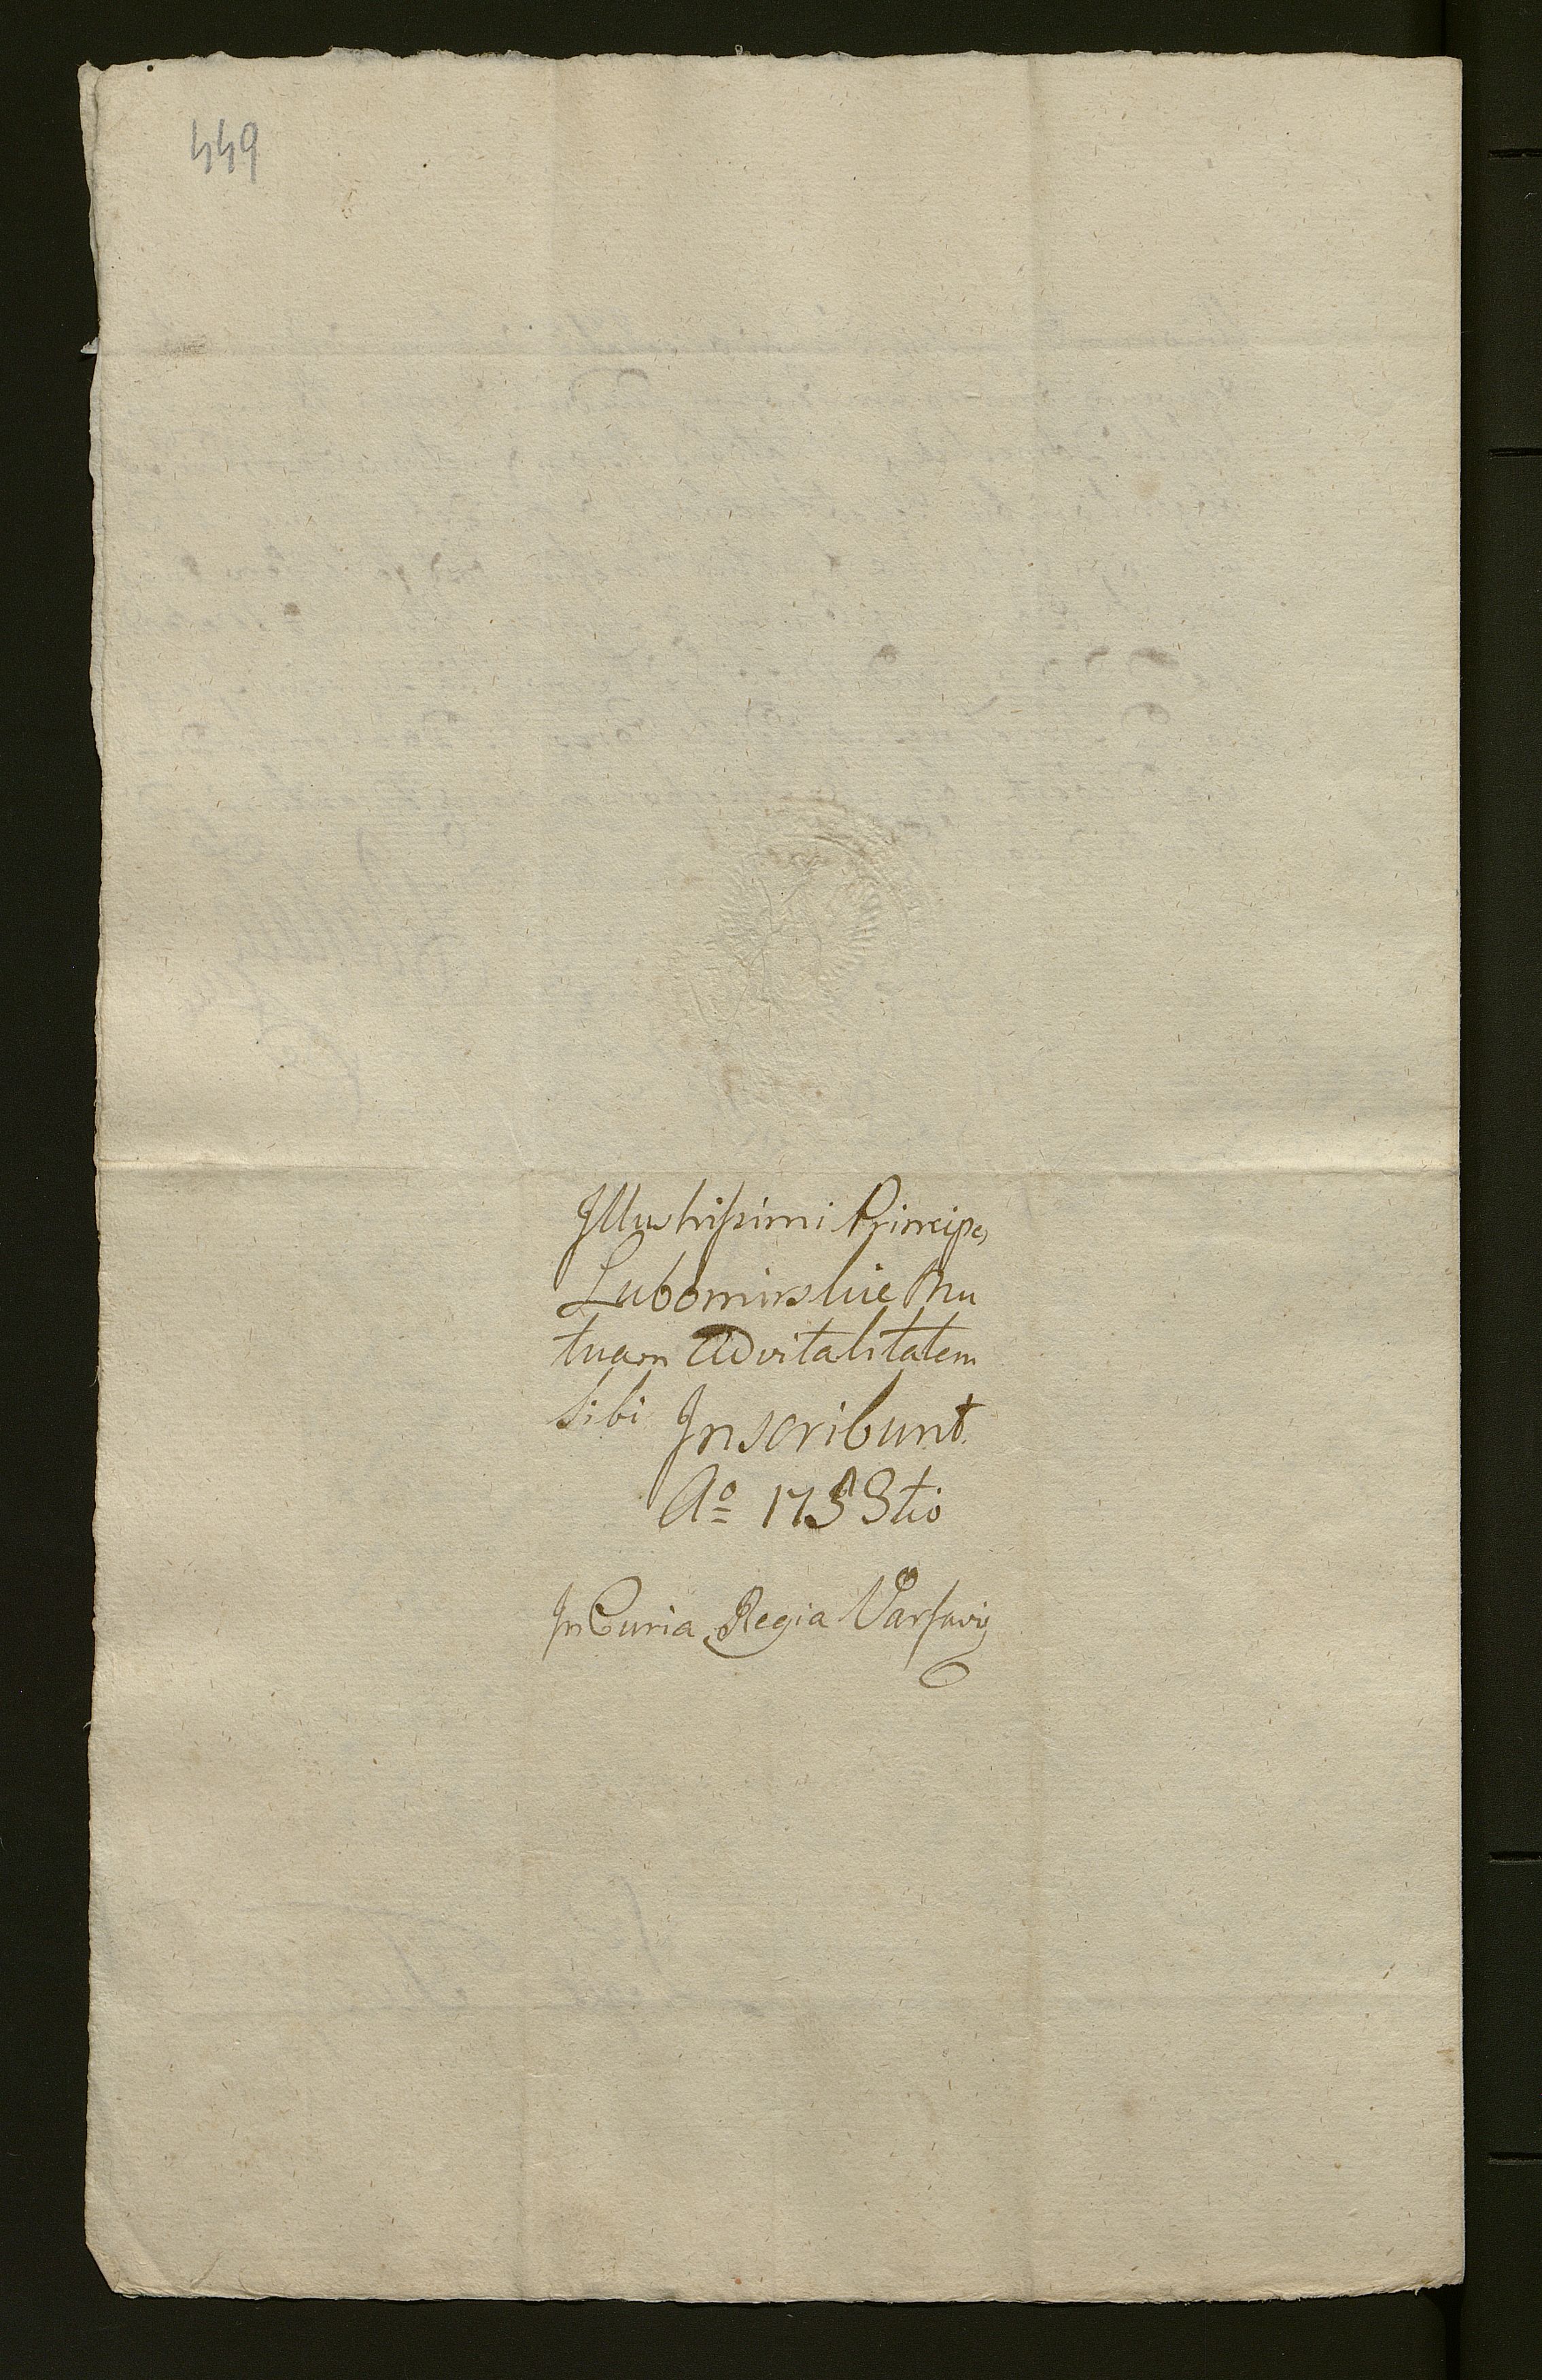 449
Illustrissimi Principes
Lubomirskie Mu
tuam Advitalitatem
sibi Inscribunt
Aº 1753tio
In Curia Regia Varsavię